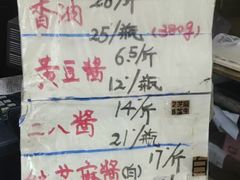 香油 28/斤
25/瓶(380g)
黄豆醬 6.5/斤
12/瓶
二八酱 14/斤
21/瓶
芝麻酱(白) 17/斤